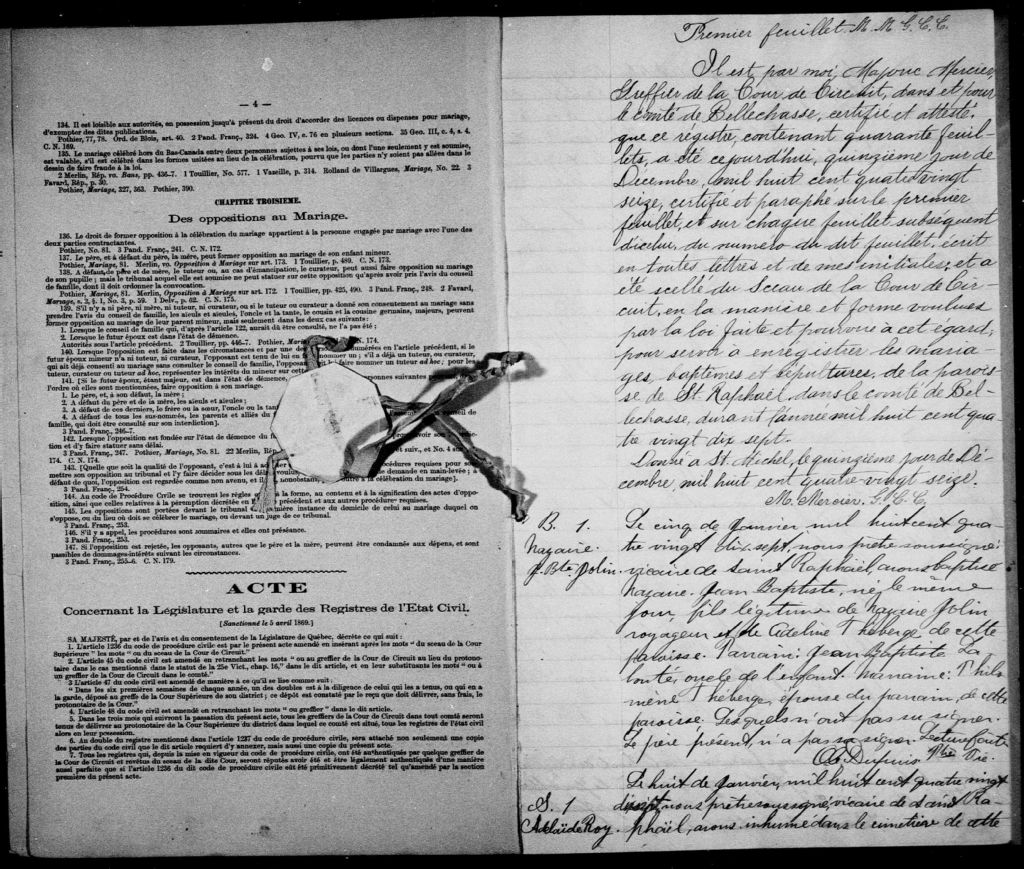 — 4 —
134. Il est loisible aux autorités, en possession jusqu'à présent du droit d'accorder des licences ou dispenses pour mariage,
d'exempter des dites publications.
Pothier, 77, 78. Ord. de Blois, art. 40. 2 Pand. Franç., 324. 4 Geo. IV, c. 76 en plusieurs sections. 35 Geo. III, c. 4, s. 4.
C. N. 169.
135. Le mariage célébré hors du Bas-Canada entre deux personnes sujettes à ses lois, ou dont l'une seulement y est soumise,
est valable, s'il est célébré dans les formes usitées au lieu de la célébration, pourvu que les parties n'y soient pas allées dans le
dessin de faire fraude à la loi.
2 Merlin, Rép. vo. Bans, pp. 436-7. 1 Touillier, No. 577. 1 Vazeille, p. 314. Rolland de Villargues, Mariage, No. 22. 3
Favard, Rép., p. 30.
Pothier, Mariage, 327, 363. Pothier, 390.
CHAPITRE TROISIEME.
Des oppositions au Mariage.
136. Le droit de former opposition à la célébration du mariage appartient à la personne engagée par mariage avec l'une des
deux parties contractantes.
Pothier, No. 81. 3 Pand. Franç., 241. C. N. 172.
137. Le père, et à défaut du père, la mère, peut former opposition au mariage de son enfant mineur.
Pothier, Mariage, 81. Merlin, vo. Opposition à Mariage sur art. 173. 1 Touillier, p. 489. C. N. 173.
138. A défaut de père et de mère, le tuteur ou, au cas d'émancipation, le curateur, peut aussi faire opposition au mariage
de son pupille; mais le tribunal auquel elle est soumise ne peut statuer sur cette opposition qu'après avoir pris l'avis du conseil
de famille, dont il doit ordonner la convocation.
Pothier, Mariage, 81. Merlin, Opposition à Mariage sur art. 172. 1 Touillier, pp. 425, 490. 3 Pand. Franç., 248. 2 Favard,
Mariage, s. 2, § 1, No. 3, p. 59. 1 Delv., p. 62. C. N. 175.
139. S'il n'y a ni père, ni mère, ni tuteur, ni curateur, ou si le tuteur ou curateur a donné son consentement au mariage sans
prendre l'avis du conseil de famille, les aïeuls et aïeules, l'oncle et la tante, le cousin et la cousine germains, majeurs, peuvent
former opposition au mariage de leur parent mineur, mais seulement dans les deux cas suivants:
1. Lorsque le conseil de famille qui, d'après l'article 122, aurait dû être consulté, ne l'a pas été;
2. Lorsque le futur époux est dans l'état de démence.
Autorités sous l'article précédent. 2 Touillier, pp. 446-7. Pothier, 174.
140. Lorsque l'opposition est faite dans les circonstances et par une de numérées en l'article précédent, si le
futur époux mineur n'a ni tuteur, ni curateur, l'opposant est tenu de lui en nommer un; s'il a déjà un tuteur, ou curateur,
qui ait déjà consenti au mariage sans consulter le conseil de famille, l'opposant faire nommer un tuteur ad hoc; pour les
tuteur, curateur ou tuteur ad hoc, représenter les intérêts du mineur sur cette
141. [Si le futur époux, étant majeur, est dans l'état de démence, personnes suivantes
l'ordre où elles sont mentionnées, faire opposition à son mariage.
1. Le père, et, à son défaut, la mère;
2. A défaut du père et de la mère, les aïeuls et aïeules;
3. A défaut de ces derniers, le frère ou la sœur, l'oncle ou la tan
4. A défaut de tous les sus-nommés, les parents et alliés conseil de
famille, qui doit être consulté sur son interdiction].
3 Pand. Franç., 246-7.
142. Lorsque l'opposition est fondée sur l'état de démence du fu
tion et d'y faire statuer sans délai.
3 Pand. Franç., 247. Pothier, Mariage, No. 81. 22 Merlin, Rép. et suiv., et No. 4 sur
174. C. N. 174.
143. [Quelle que soit la qualité de l'opposant, c'est à lui à procédures requises pour so
mettre son opposition au tribunal et l'y faire décider sous les délais demande en main-levée; à
défaut de quoi, l'opposition est regardée comme non avenu, et il nonobstant, à la célébration du mariage].
3 Pand. Franç., 254.
144. Au code de Procédure Civile se trouvent les règles la forme, au contenu et à la signification des actes d'oppo-
sition, ainsi que celles relatives à la péremption décrétée en précédent et aux autres procédures requises.
145. Les oppositions sont portées devant le tribunal mière instance du domicile de celui au mariage duquel on
s'oppose, ou du lieu où doit se célébrer le mariage, ou devant un juge de ce tribunal.
3 Pand. Franç., 253.
146. S'il y a appel, les procédures sont sommaires et elles ont préséance.
3 Pand. Franç., 253.
147. Si l'opposition est rejetée, les opposants, autres que le père et la mère, peuvent être condamnés aux dépens, et sont
passibles de dommages-intérêts suivant les circonstances.
3 Pand. Franç., 255-6. C. N. 179.
ACTE
Concernant la Législature et la garde des Registres de l'Etat Civil.
[Sanctionné le 5 avril 1869.]
SA MAJESTÉ, par et de l'avis et du consentement de la Législature de Québec, décrète ce qui suit:
1. L'article 1236 du code de procédure civile est par le présent acte amendé en insérant après les mots "du sceau de la Cour
Supérieure" les mots "ou du sceau de la Cour de Circuit."
2. L'article 45 du code civil est amendé en retranchant les mots "ou au greffier de la Cour de Circuit au lieu du protono-
taire dans le cas mentionné dans le statut de la 25e Vict., chap. 16," dans le dit article, et en leur substituant les mots "ou à
un greffier de la Cour de Circuit dans le comté."
3 L'article 47 du code civil est amendé de manière à ce qu'il se lise comme suit:
"Dans les six premières semaines de chaque année, un des doubles est à la diligence de celui qui les a tenus, ou qui en a
la garde, déposé au greffe de la Cour Supérieure de son district; ce dépôt est constaté par le reçu que doit délivrer, sans frais, le
protonotaire de la Cour."
4. L'article 48 du code civil est amendé en retranchant les mots "ou greffier" dans le dit article.
5. Dans les trois mois qui suivront la passation du présent acte, tous les greffiers de la Cour de Circuit dans tout comté seront
tenus de délivrer au protonotaire de la Cour Supérieure du district dans lequel ce comté est situé, tous les registres de l'état civil
alors en leur possession.
6. Au double du registre mentionné dans l'article 1237 du code de procédure civile, sera attaché non seulement une copie
des parties du code civil que le dit article requiert d'y annexer, mais aussi une copie du présent acte.
7. Tous les registres qui, depuis la mise en vigueur du code de procédure civile, ont été authentiqués par quelque greffier de
la Cour de Circuit et revêtus du sceau de la dite Cour, seront réputés avoir été et être légalement authentiqués d'une manière
aussi parfaite que si l'article 1236 du dit code de procédure civile eût été primitivement décrété tel qu'amendé par la section
première du présent acte.
Premier feuillet. M. M. G. C. C.
Il est par moi, Majoric Mercier,
Greffier de la Cour de Circuit, dans et pour
le comté de Bellechasse, certifié et attesté
que ce registre, contenant quarante feuil-
lets, a été cejourd'hui, quinzième jour de
Décembre, mil huit cent quatre vingt
seize, certifié et paraphé sur le premier
feuillet, et sur chaque feuillet subsequent
dicelui, du numero du dit feuillet, écrit
en toutes lettres et de mes initiales; et a
été scellé du Sceau de la Cour de Cir-
cuit, en la manière et forme voulues
par la loi faite et pourvue à cet égard,
pour servir à enregistrer les maria-
ges, baptêmes et sépultures, de la parois-
se de St. Raphaël, dans le comté de Bel-
lechasse, durant l'année mil huit cent qua-
tre vingt dix sept.
Donné à St. Michel, le quinzième jour de Dé-
cembre mil huit cent quatre-vingt seize.
M. Mercier, G. C. C.
B. 1.
Nazaire.
J. Bte. Jolin.
Le cinq de Janvier mil huit cent qua-
tre vingt dix. sept, nous prêtre soussigné,
vicaire de Saint Raphaël avons baptisé
Nazaire. Jean Baptiste, né, le même
jour, fils légitime de Nazaire Jolin
voyageur et de Adeline Théberge de cette
paroisse. Parrain: Jean Baptiste La-
bonté, oncle de l'enfant. Marraine: Philo
mène Théberge, épouse du parrain, de cette
paroisse. Lesquels n'ont pas su signer.
Le père présent, n'a pas su signer. Lecture faite
Dupuis Ptre Vic.
S. 1
Adelaïde Roy.
Le huit de Janvier, mil huit cent quatre vingt
dix sept, nous prêtre soussigné, vicaire de Saint Ra-
phaël, avons inhumé dans le cimetière de cette